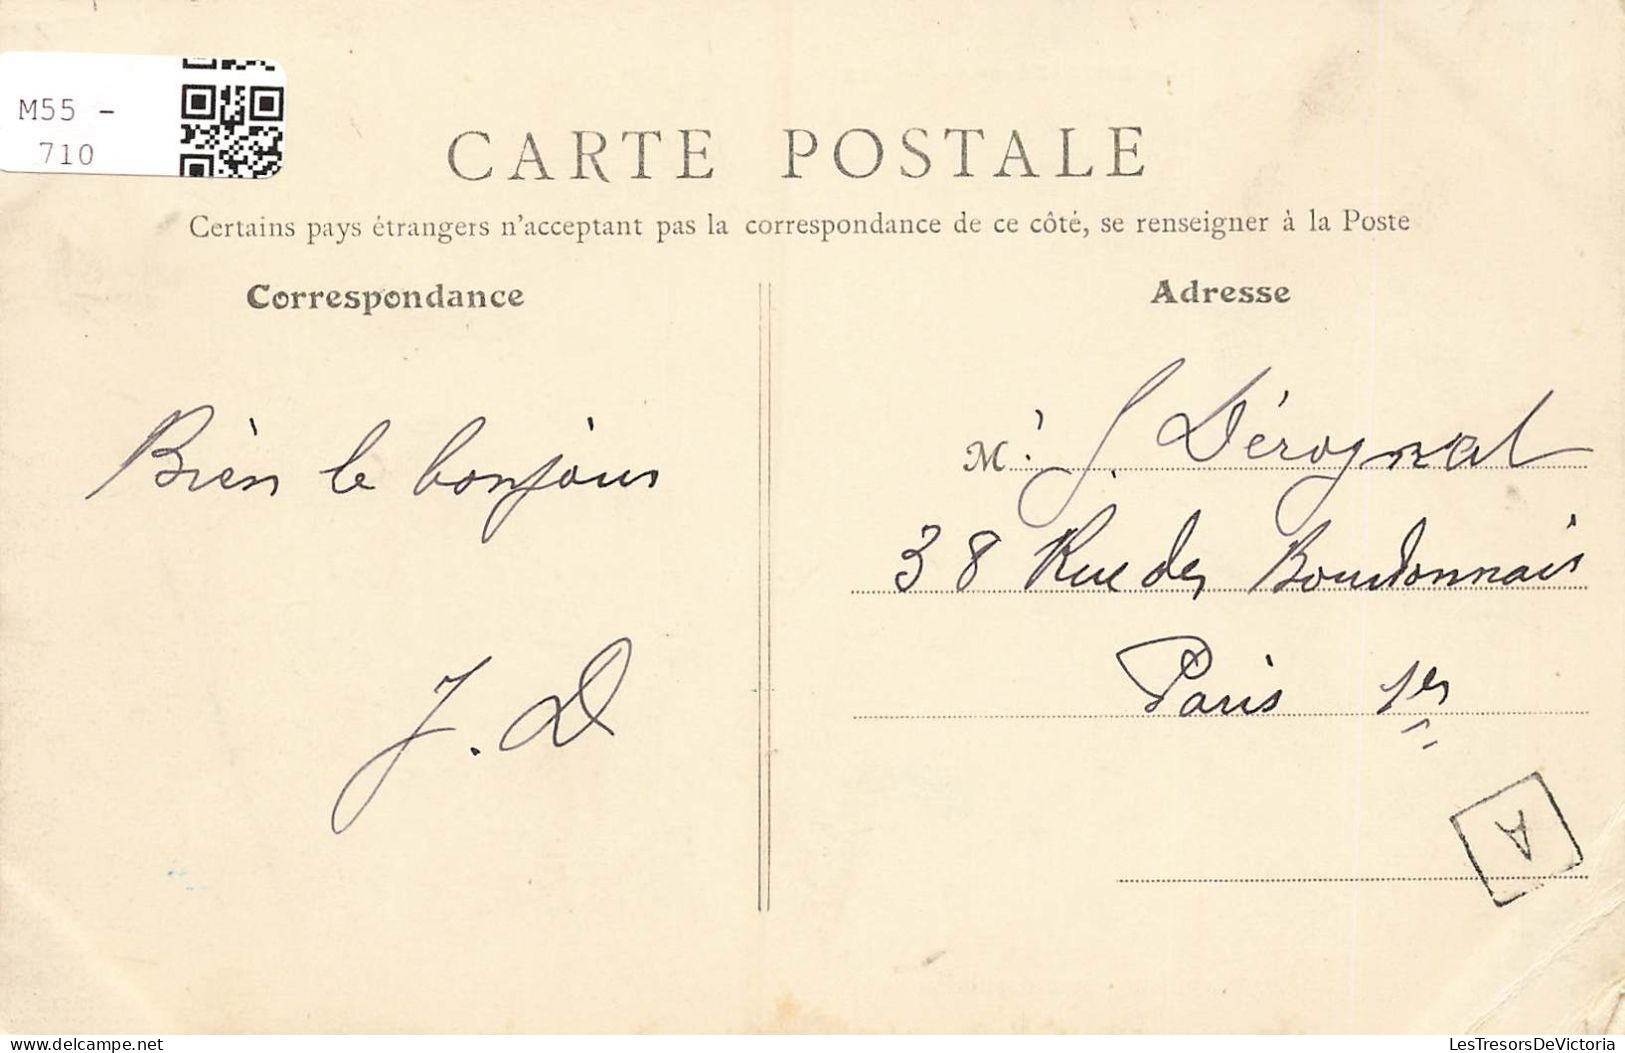 M55 -
710
CARTE POSTALE
Certains pays étrangers n'acceptant pas la correspondance de ce côté, se renseigner à la Poste
Correspondance
Adresse
Bien le bonjour
J. D
Mr. J. Dérognat
38 Rue des Bourdonnais
Paris 1er
A
LesTresorsDeVictoria
delcampe.net